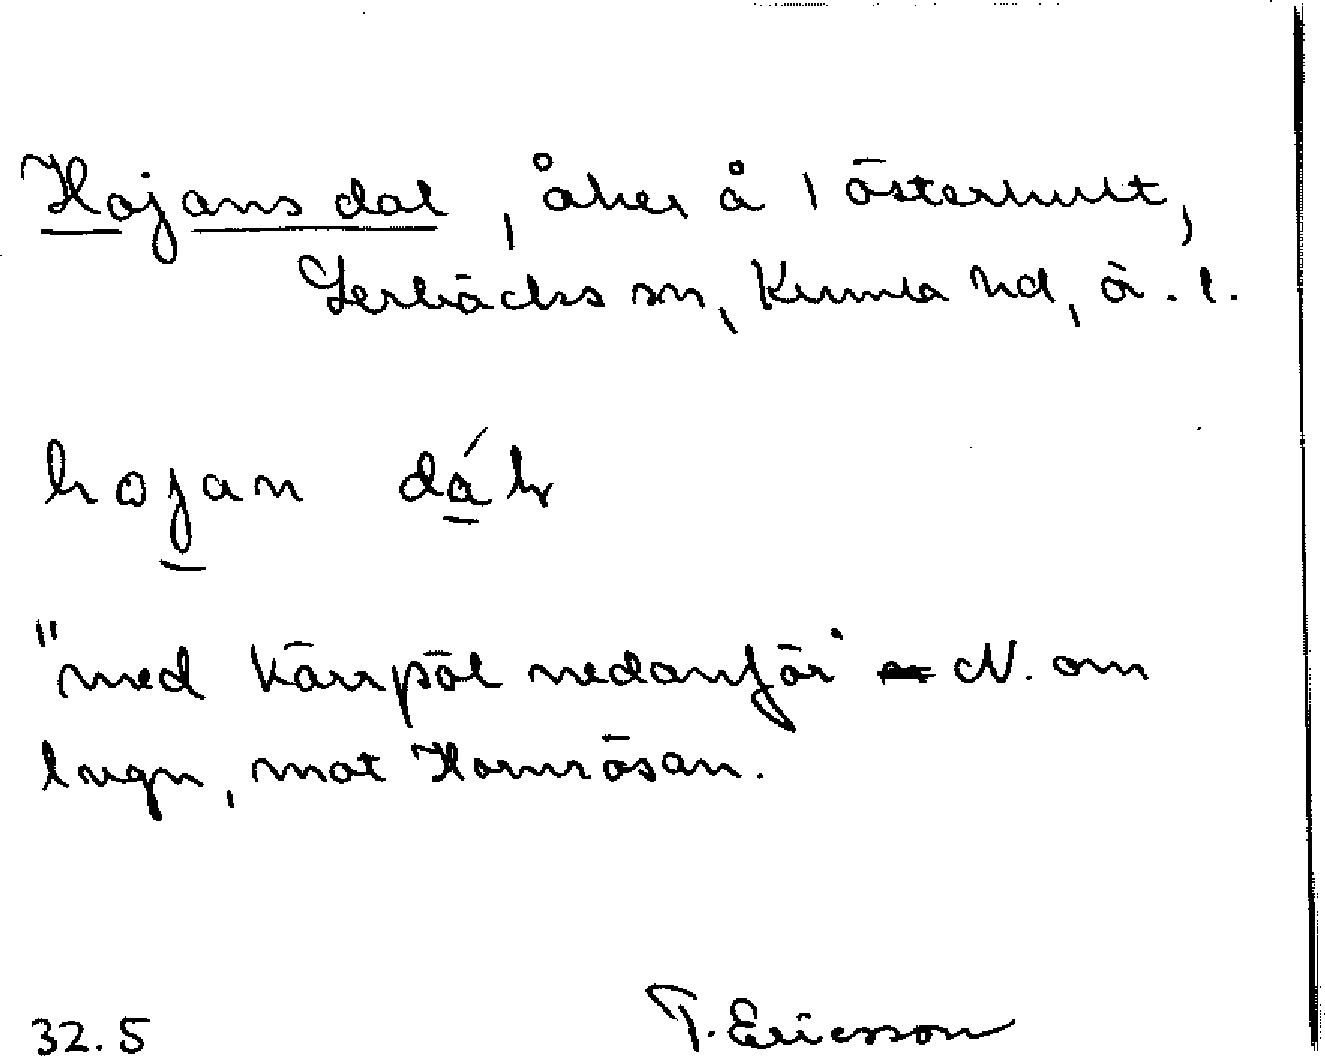 Hojans dal, åker å 1 Österhult,
Lerbäcks sn, Kumla hd, Ö.l.
hojan dál
"med kärrpöl nedanför" N. om
lugn, mot Hornrösan.
32.5 T. Ericsson